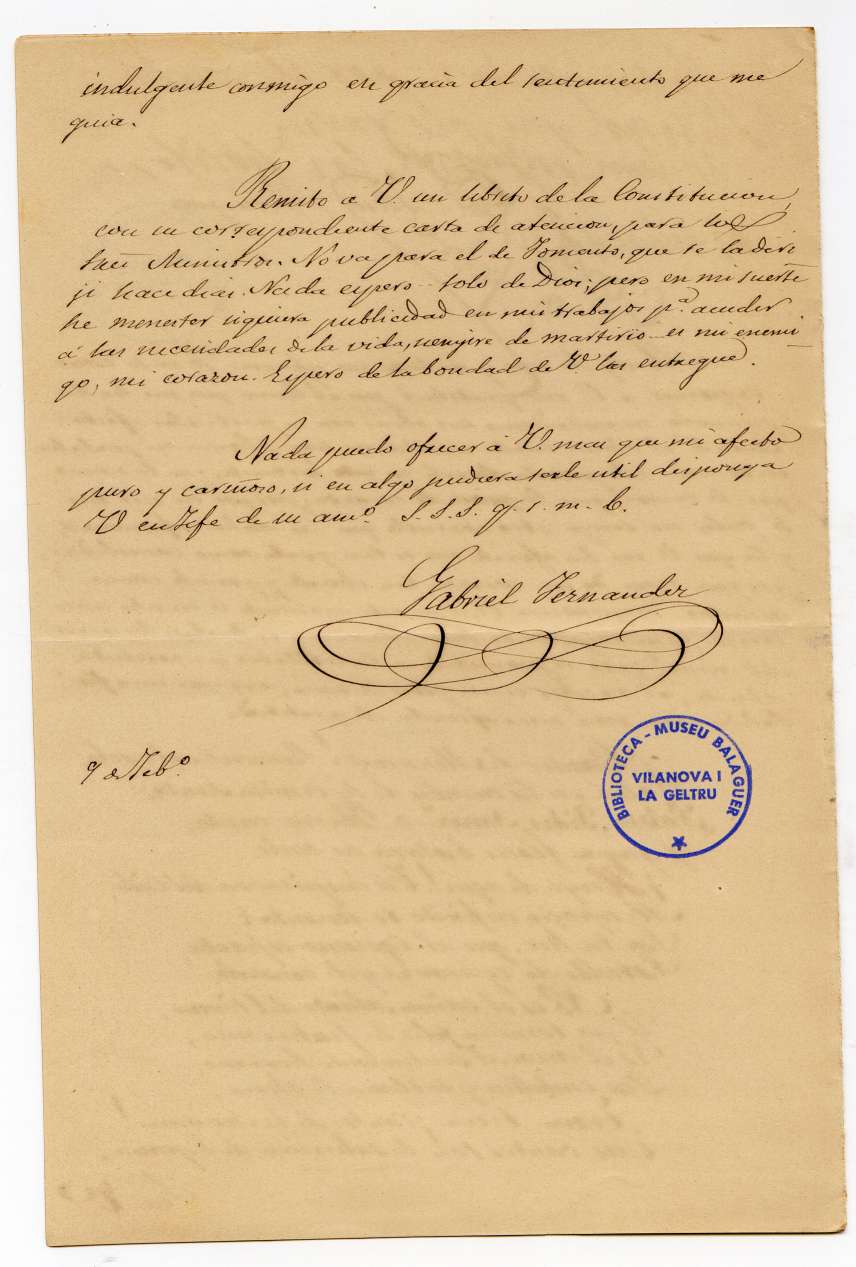 indulgente conmigo en gracia del sentimiento que me
guia.
Remito a V. un librito de la Constitucion,
con su correspondiente carta de atencion, para los
Ministros. No va para el de Fomento, que se la diri
ji hace dias. Nada espero - solo de Dios; pero en mi suerte
he menester siquiera publicidad en mis trabajos pª. acudir
á las necesidades de la vida, siempre de martirio - es mi enemi
go, mi corazon. Espero de la bondad de V. las entregue.
Nada puedo ofrecer á V. mas que mi afecto
puro y cariñoso, si en algo pudiera serle util disponga
V en Jefe de su amº. S. S. S. q. s. m. b.
Gabriel Fernandez
9 de Febº.
BIBLIOTECA - MUSEU BALAGUER
VILANOVA I
LA GELTRU